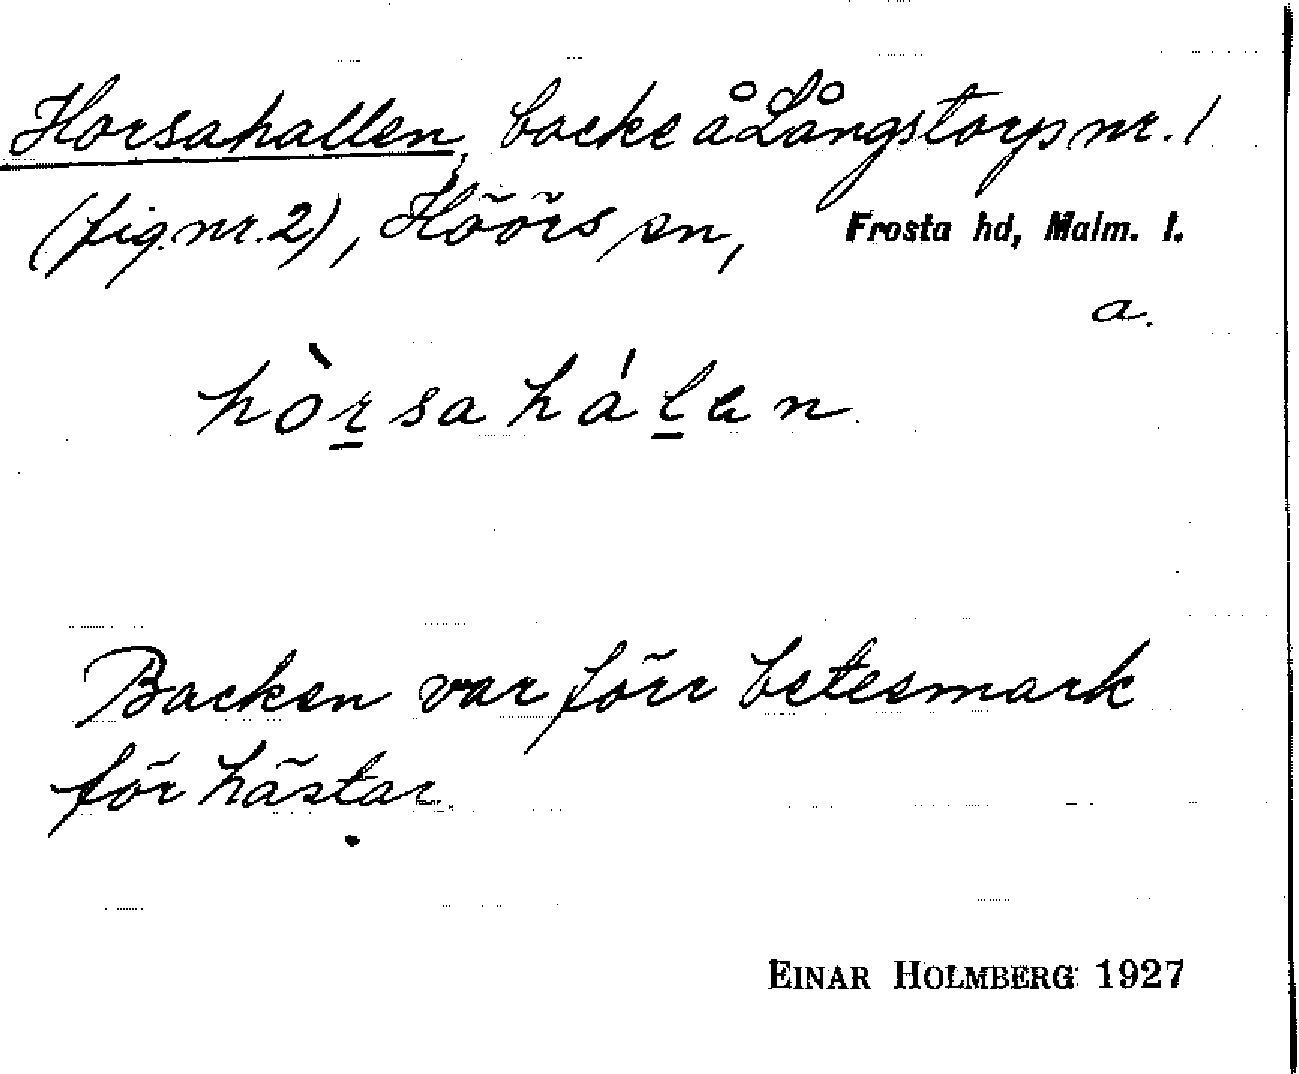 Horsahallen, backe å Långstorp nr. 1
(fig. nr. 2), Höörs sn, Frosta hd, Malm. l.
a.
hòrsahálen
Backen var förr betesmark
för hästar.
EINAR HOLMBERG 1927